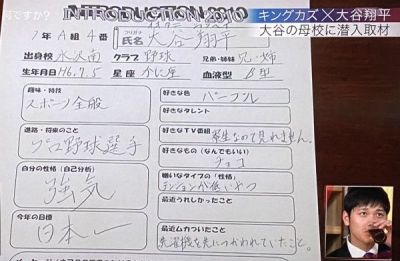 ですか？
INTRODUCTION 2010
キングカズ×大谷翔平
大谷の母校に潜入取材
1年A組4番
フリガナ
氏名 大谷翔平
出身校 水沢南 クラブ 野球 兄弟姉妹 兄・姉
生年月日 H6.7.5 星座 かに座 血液型 B型
趣味・特技
スポーツ全般
進路・将来のこと
プロ野球選手
自分の性格(自己分析)
強気
今年の目標
日本一
好きな色
パープル
好きなタレント
好きなTV番組
寮生なので見れません。
好きなもの(なんでもいい)
チョコ
嫌いなタイプの(性格)
テンションが低いやつ
最近うれしかったこと
最近ムカついたこと
洗濯機を先につかわれていたこと。